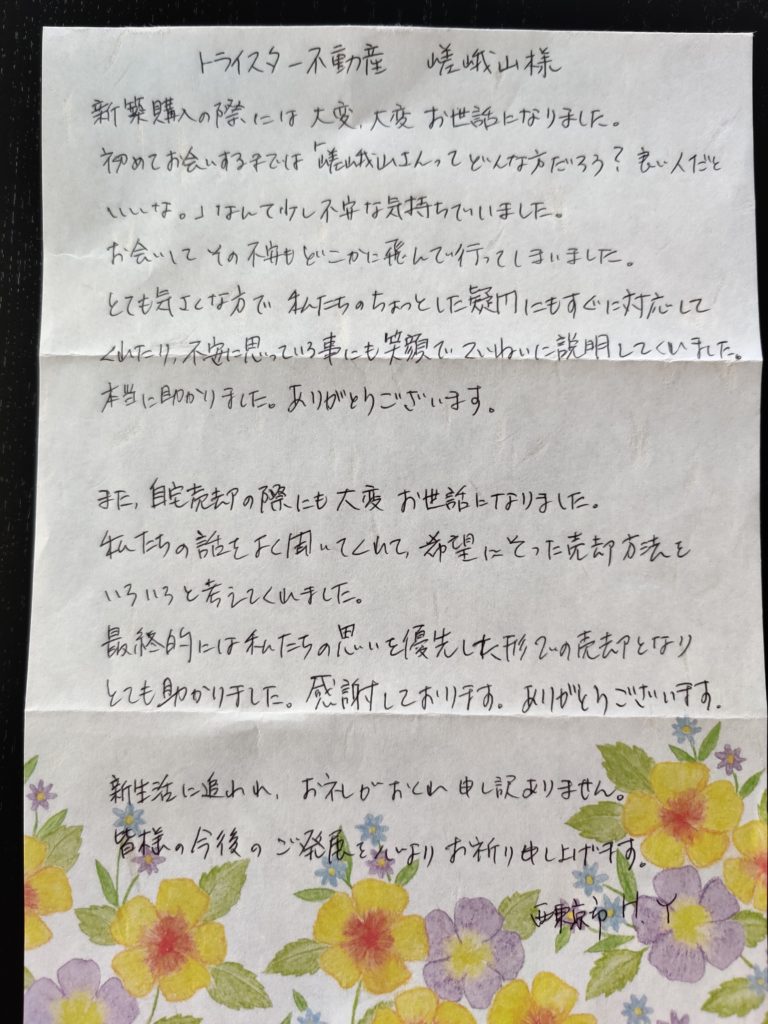 トライスター不動産 嵯峨山様
新築購入の際には大変、大変お世話になりました。
初めてお会いするまでは「嵯峨山さんってどんな方だろう？良い人だと
いいな。」なんて少し不安な気持ちでいました。
お会いしてその不安もどこかに飛んで行ってしまいました。
とても気さくな方で 私たちのちょっとした疑問にもすぐに対応して
くれたり、不安に思っている事にも笑顔でていねいに説明してくれました。
本当に助かりました。ありがとうございます。
また、自宅売却の際にも大変お世話になりました。
私たちの話をよく聞いてくれて、希望にそった売却方法を
いろいろと考えてくれました。
最終的には私たちの思いを優先した形での売却となり
とても助かりました。感謝しております。ありがとうございます.
新生活に追われ、お礼がおくれ申し訳ありません。
皆様の今後のご発展を心よりお祈り申し上げます。
西東京市 H.Y